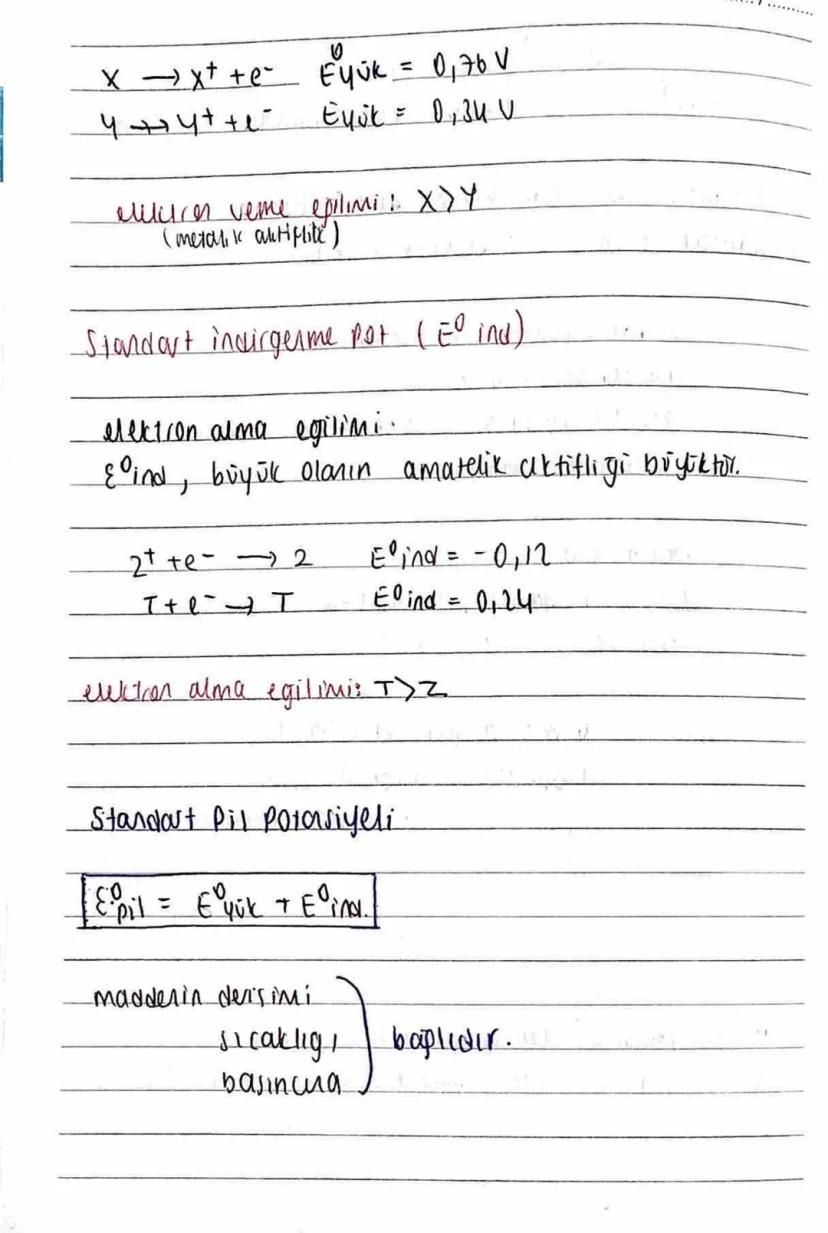 X → X⁺ + e⁻ E⁰yük = 0,76 V
Y → Y⁺ + e⁻ Eyük = 0,34 V
elektron verme eğilimi: X>Y
(metalik aktiflik)
Standart indirgenme pot (E⁰ ind)
elektron alma egilimi.
E⁰ind, büyük olanın ametalik aktifligi büyüktür.
Z⁺ + e⁻ → Z E⁰ind = -0,12
T + e⁻ → T E⁰ind = 0,24
elektron alma egilimi: T>Z
Standart Pil Potansiyeli
E⁰pil = E⁰yük + E⁰ind.
maddenin derişimi
sıcaklıgı
basıncına
bağlıdır.